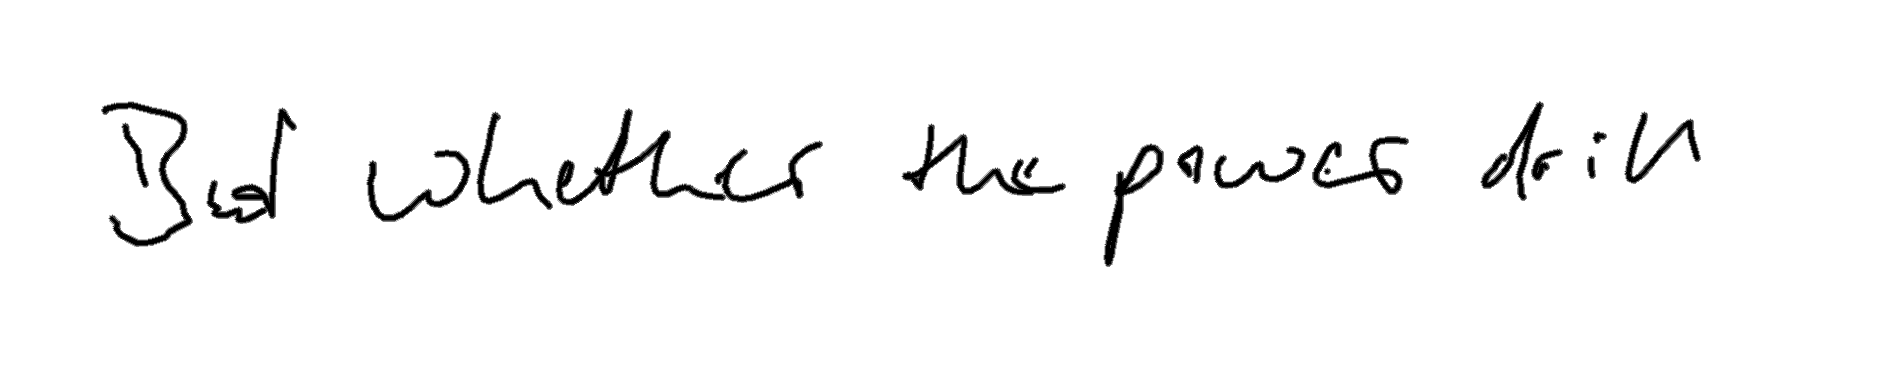 But whether the power drill